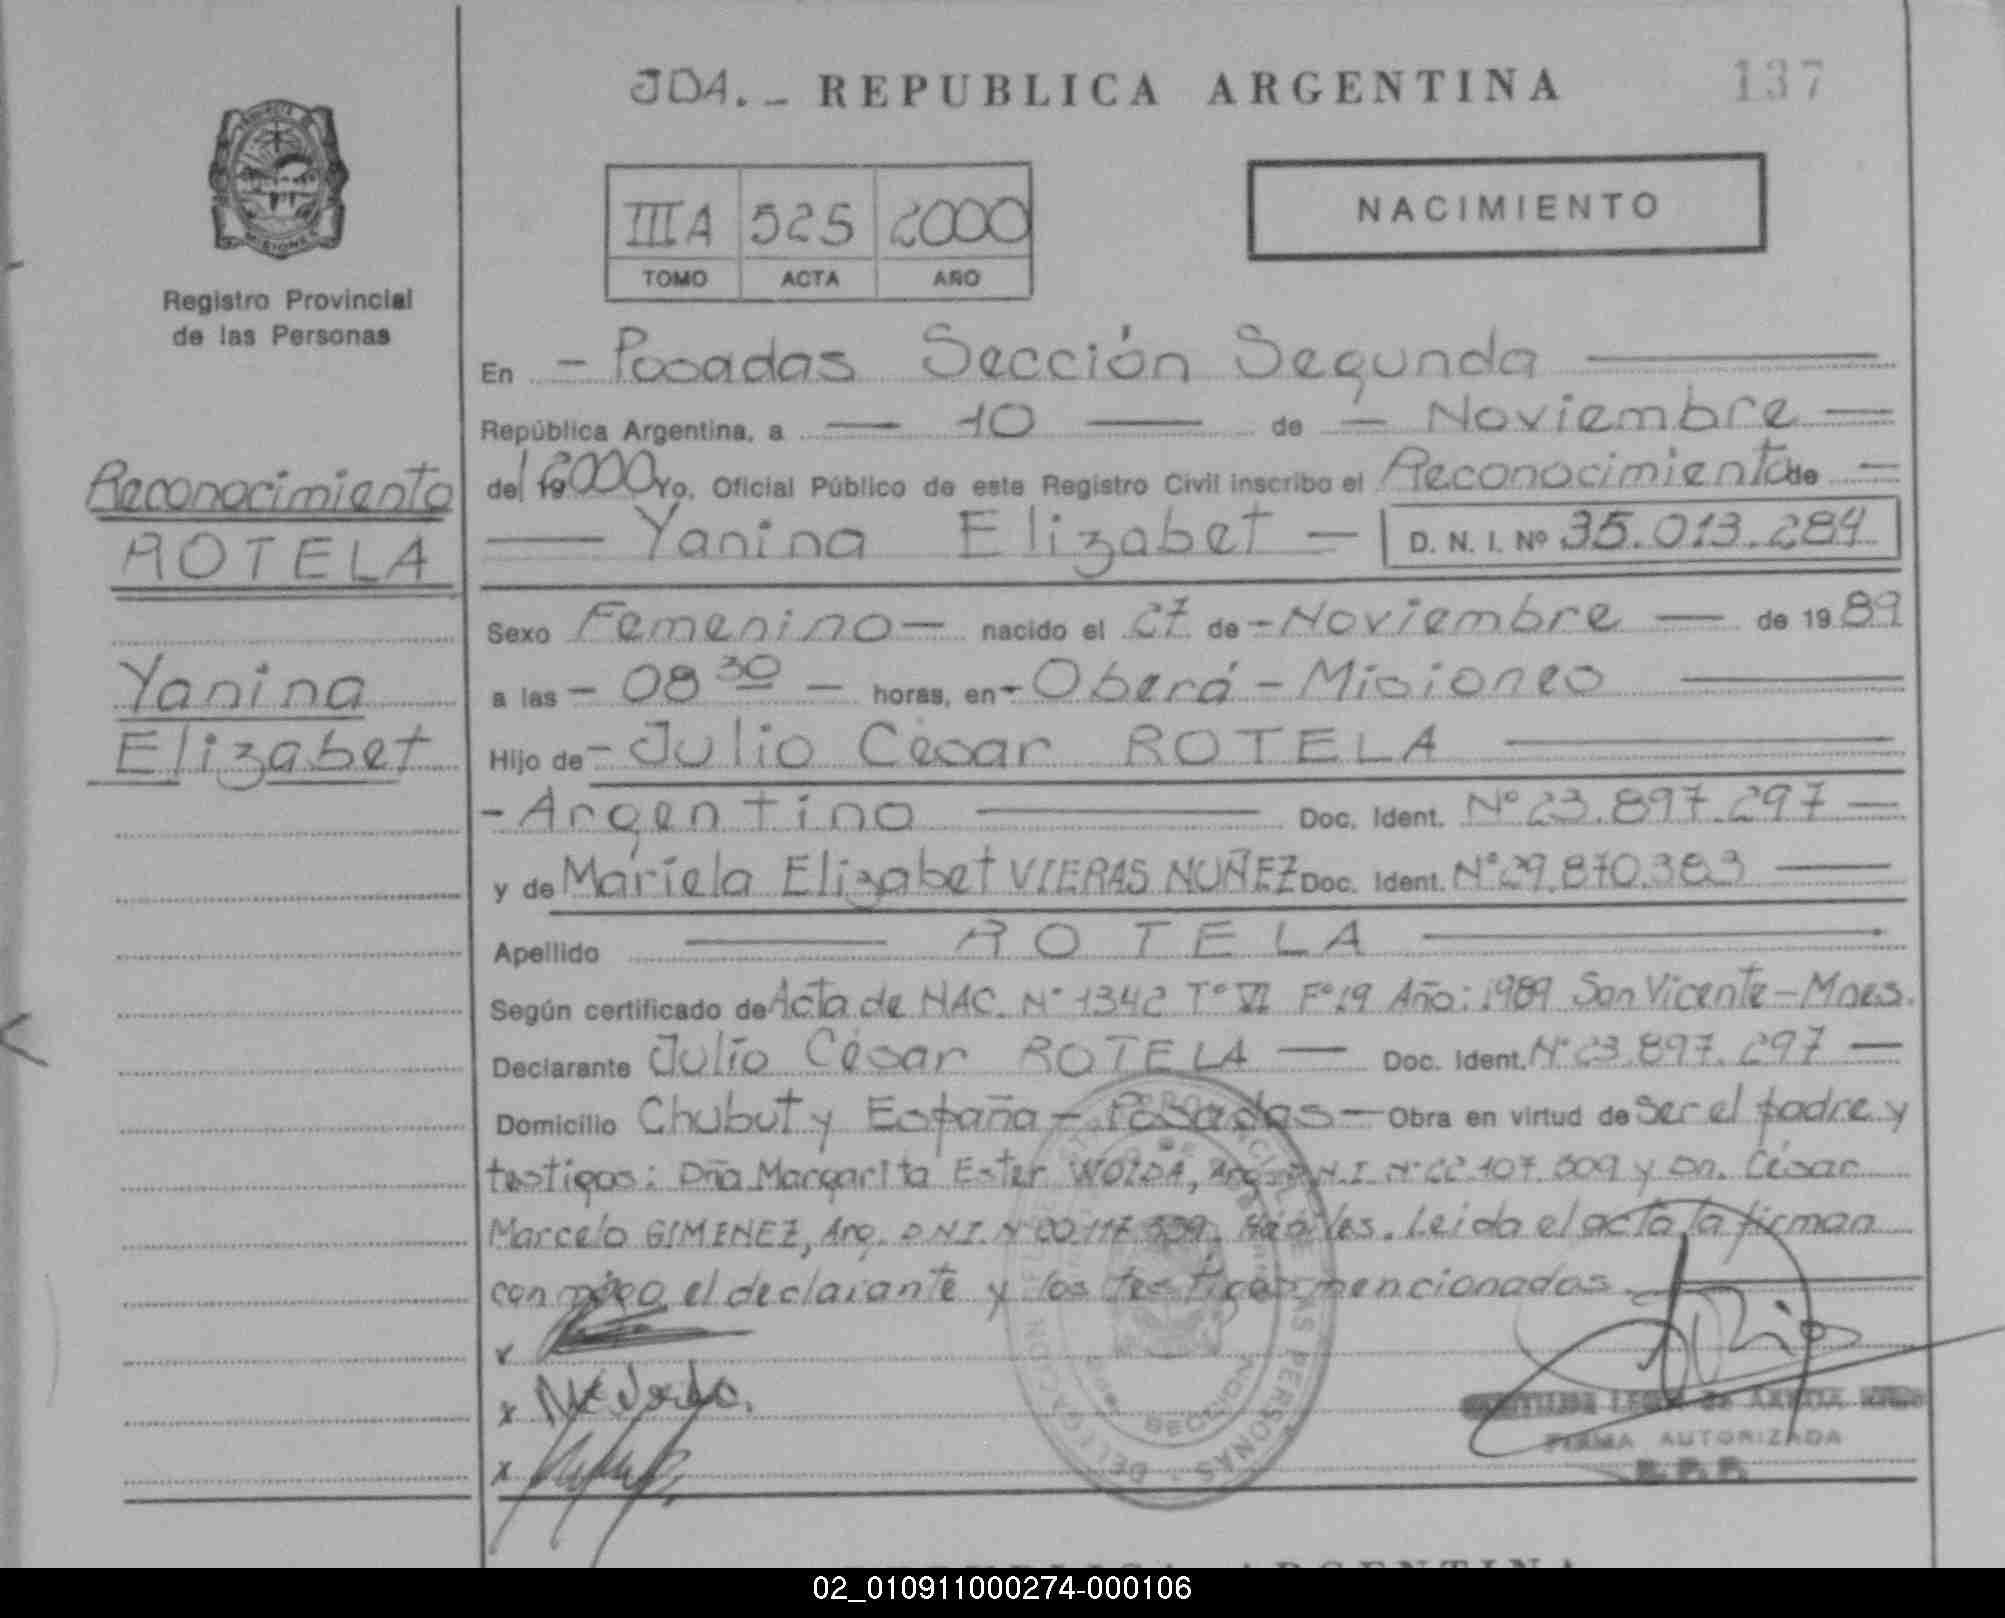 JDA. - REPUBLICA ARGENTINA 137
III A 525 2000
TOMO ACTA AÑO
NACIMIENTO
MISIONES
Registro Provincial
de las Personas
Reconocimiento
ROTELA
Yanina
Elizabet
En - Posadas Sección Segunda
República Argentina, a - 10 - de - Noviembre -
del 2000 Yo, Oficial Público de este Registro Civil inscribo el Reconocimiento de -
- Yanina Elizabet - D. N. I. Nº 35.013.284
Sexo Femenino - nacido el 27 de - Noviembre - de 19 89
a las - 08 30 - horas, en - Oberá - Misiones
Hijo de - Julio César ROTELA
- Argentino - Doc. Ident. Nº 23.897.297 -
y de Mariela Elizabet VIERAS NUÑEZ Doc. Ident. Nº 29.870.383
Apellido - ROTELA
Según certificado de Acta de NAC. Nº 1342 Tº VI Fº 19 Año: 1989 San Vicente - Mnes.
Declarante Julio César ROTELA - Doc. Ident. Nº 23.897.297 -
Domicilio Chubut y España - Posadas - Obra en virtud de Ser el padre y
testigos: Dña Margarita Ester WOIDA, Arg. D.N.I. Nº 22.107.309 y Dn. César
Marcelo GIMENEZ, Arg. D.N.I. Nº Hábiles. Leida el acta la firman
conmigo el declarante y los testigos mencionados
x
x
x
FIRMA AUTORIZADA
REPUBLICA ARGENTINA
02_010911000274-000106